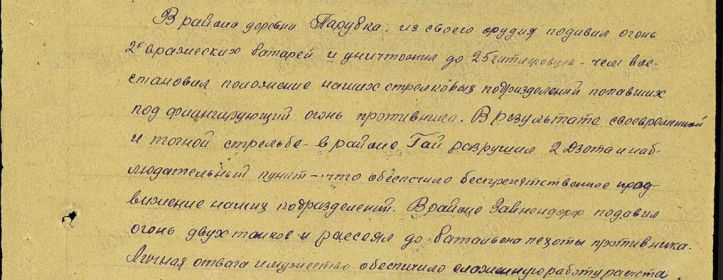 В районе деревни Парувка, из своего орудия подавил огонь
2х вражеских батарей и уничтожил до 25 гитлеровцев - чем вос-
становил положение наших стрелковых подразделений попавших
под фланкирующий огонь противника. В результате своевременной
и точной стрельбе - в районе Гай разрушил 2 дзота и наб-
людательный пункт - что обеспечило беспрепятственное прод-
вижение наших подразделений. В районе Зайнондорф подавил
огонь двух танков и рассеял до батальона пехоты противника.
Личная отвага и мужество обеспечило слаженную работу расчета